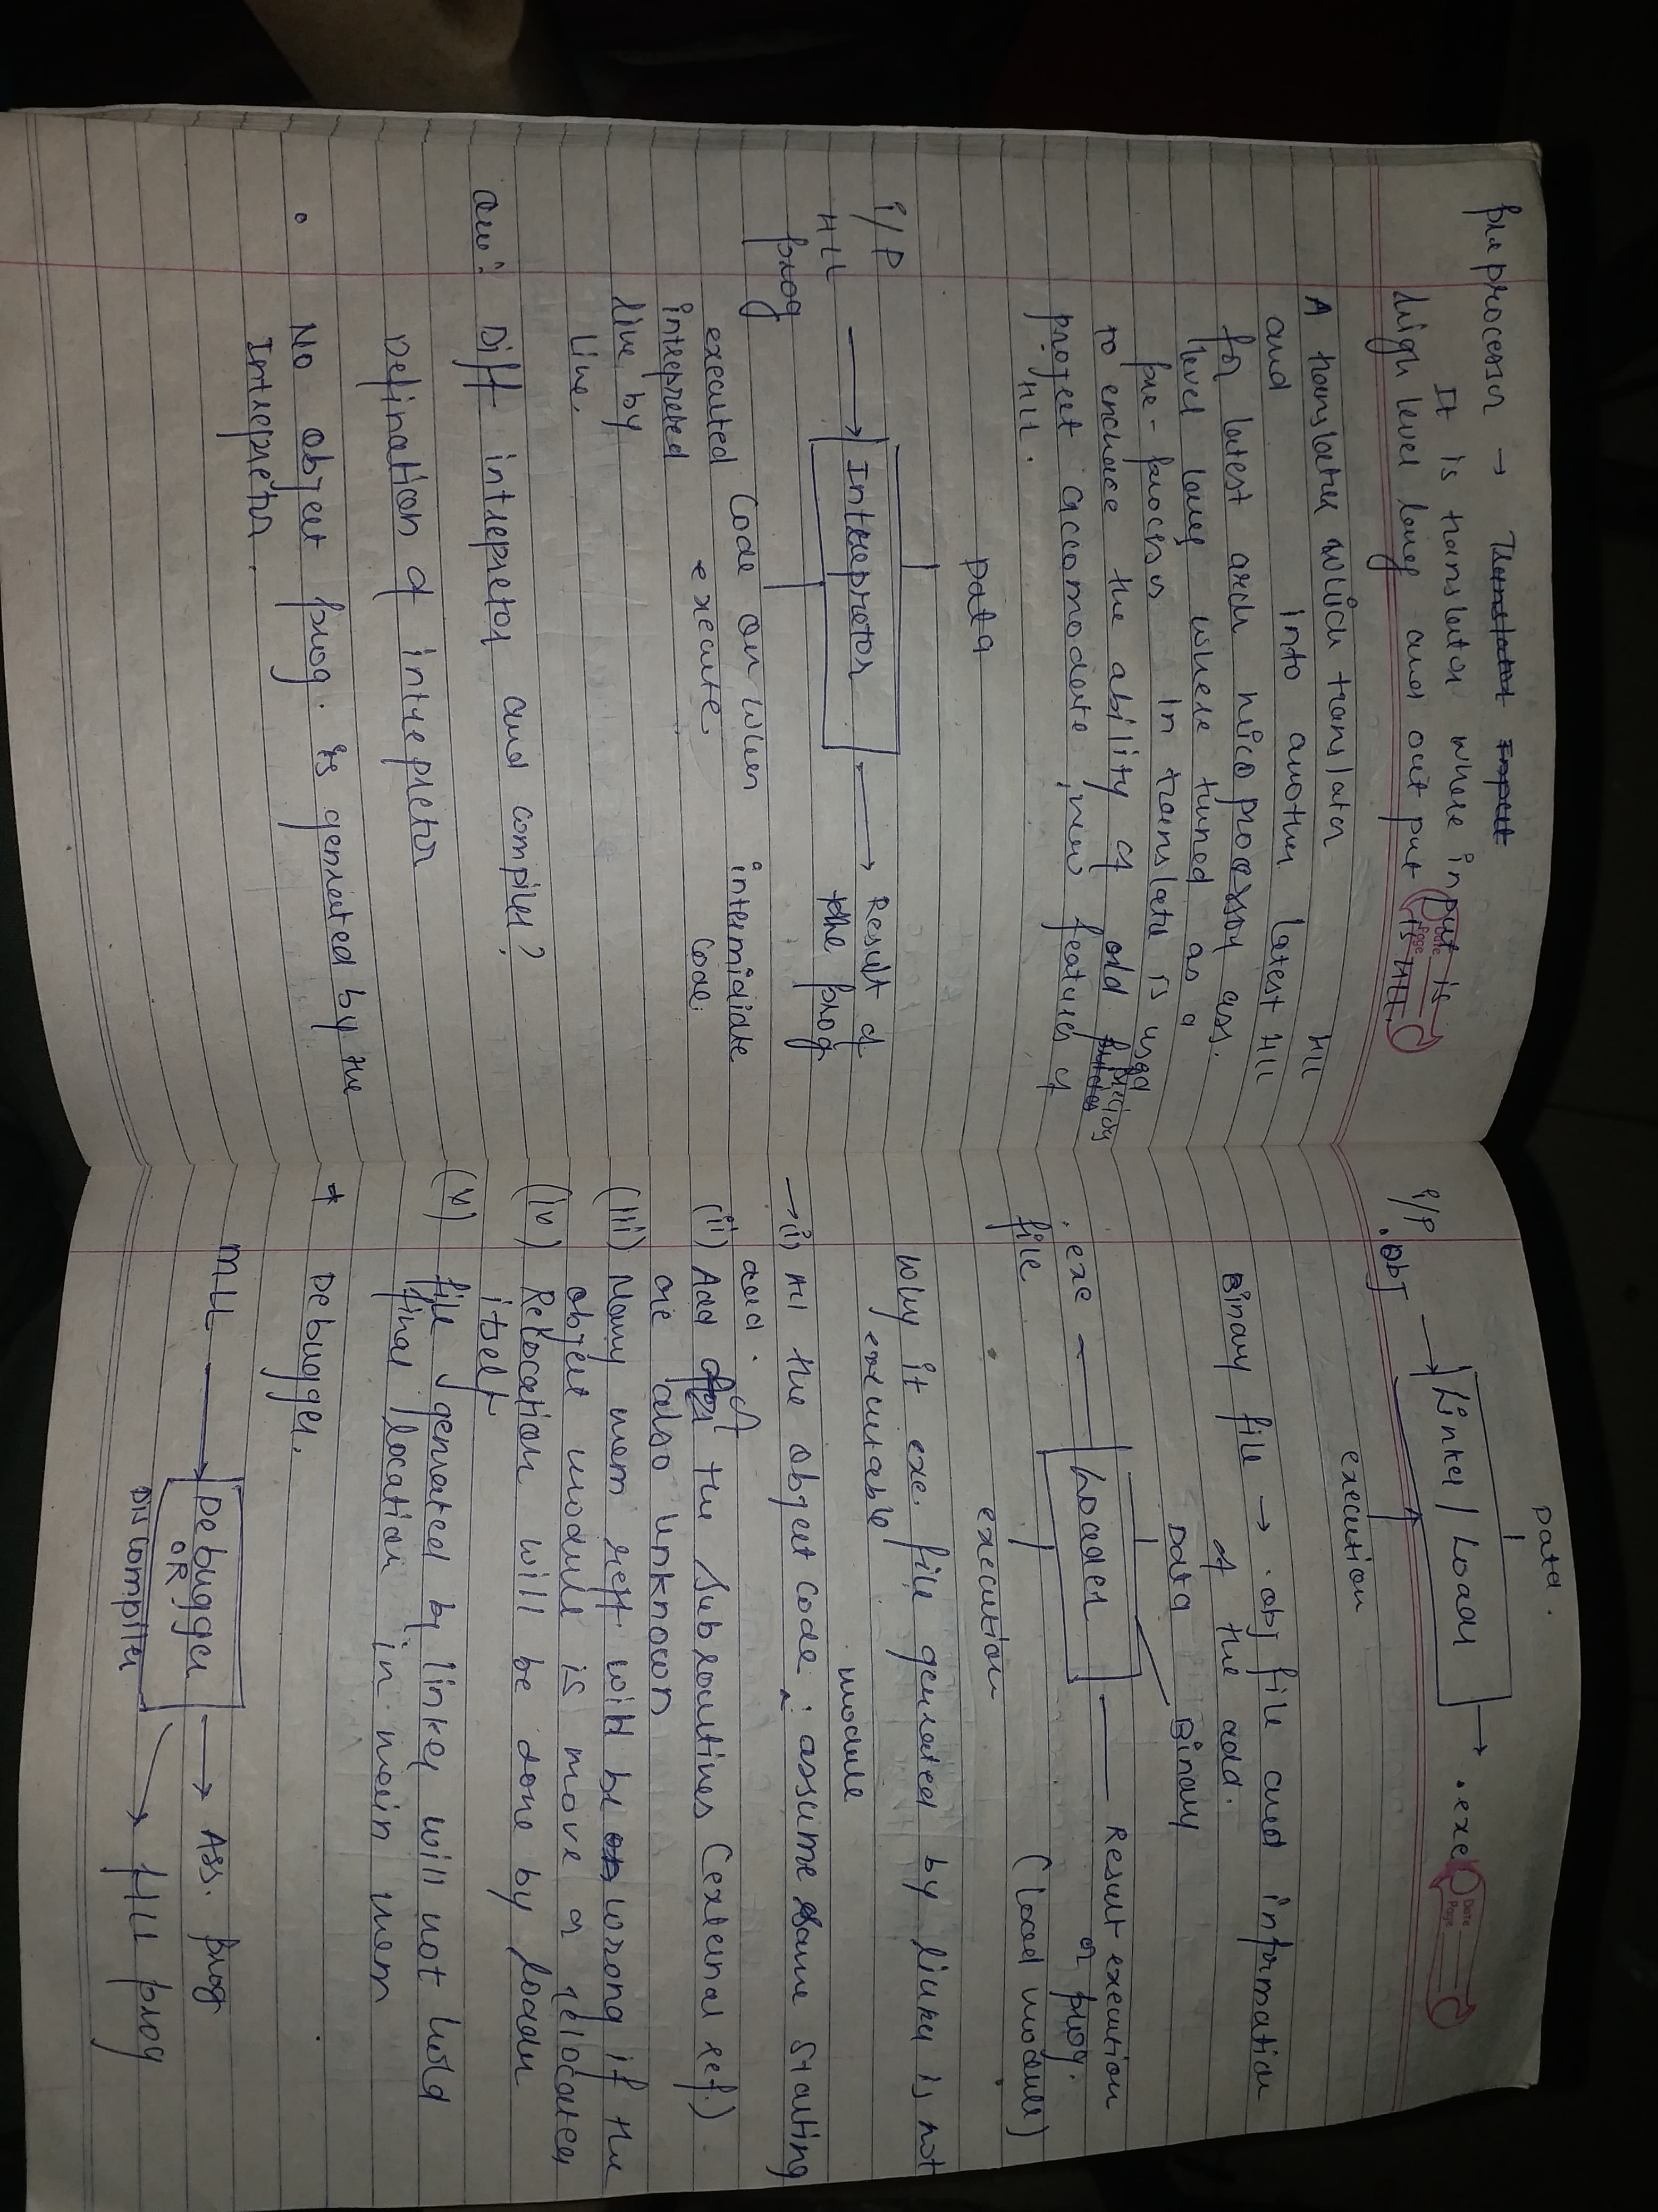 preprocessor → Translator Input
It is translator where input is
high level lang and out put is HLL.
Date
Page
A translator which translator HLL
and into another latest HLL
for latest arch micoprocessor ass.
level lang where tuned as a
pre-processor In translate is used
to enchace the ability of old
project accomodate , new features of
HLL.
Data
i/P
HLL
prog
Intrepretor
Result of
the prog
executed code on when intermidiate
intrepreted execute code.
line by
line.
Que: Diff intrepretor and compiler?
Defination of intrepretor
No object prog. is genrated by the
Intrepretor.
Data.
i/P
.obj
Linker / Loader
.exe
Date
Page
execution
Binary file → .obj file and information
of the add.
Data Binary
.exe
file
Loader
Result execution
of prog.
(load module)
execution
Why it exe. file genrated by linker is not
executable
module
→(i) All the object code : assume same starting
add.
(ii) Add of the Subroutines (external ref.)
are also unknown
(iii) Many mem reff. will be wrong if the
object module is move or relocated
(iv) Relocation will be done by loader
itself
(v) file genrated by linker will not hold
final location in main mem
* Debugger.
MLL
Debugger
OR
Discompiler
Ass. prog
HLL prog